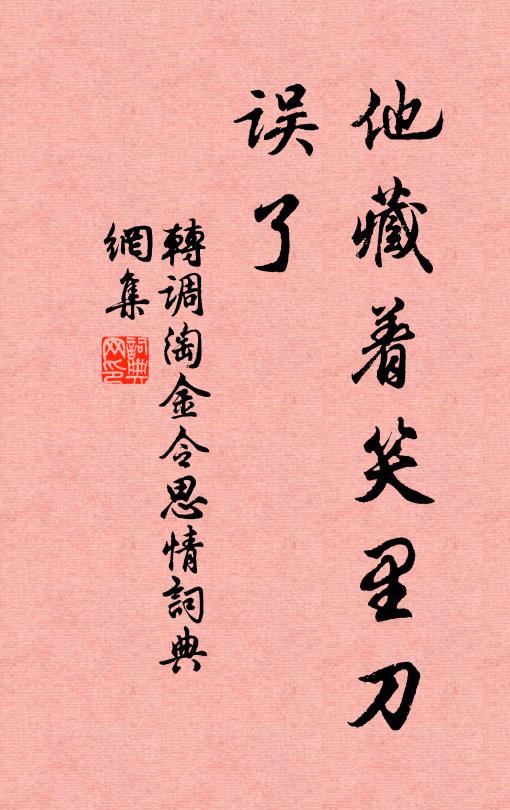 他藏着笑里刀
误了
轉调淘金令思情詞典
網集
詞典
网印